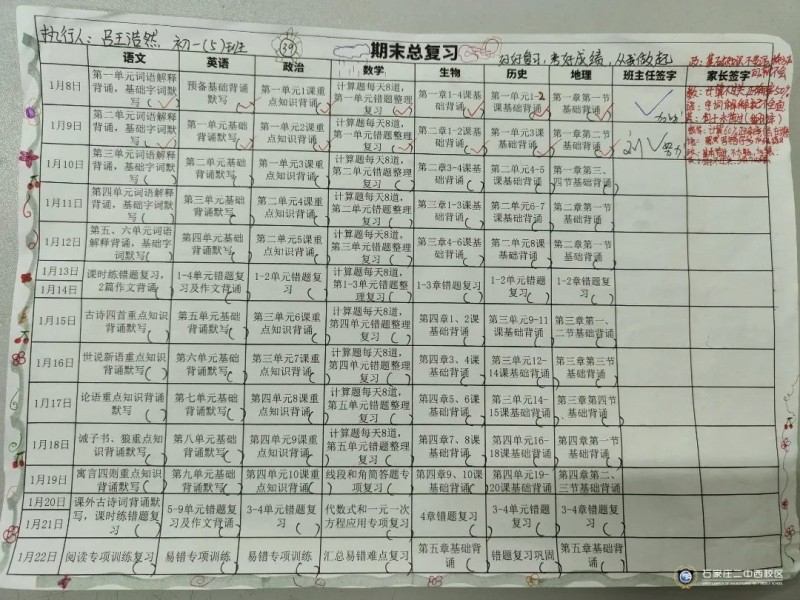 执行人：吕王浩然 初一(5)班 39 期末总复习 好好复习，考好成绩，从我做起
语文 英语 政治 数学 生物 历史 地理 班主任签字 家长签字
1月8日 第一单元词语解释背诵，基础字词默写(✓) 预备基础背诵默写 第一单元1课重点知识背诵 计算题每天8道，第一单元错题整理复习(✓) 第一章1-4课基础背诵 第一单元1-2课基础背诵 第一章第一节基础背诵
1月9日 第二单元词语解释背诵，基础字词默写(✓) 第一单元基础背诵默写 第一单元2课重点知识背诵 计算题每天8道，第一单元错题整理复习(✓) 第二章1-2课基础背诵 第一单元3课基础背诵 第一章第二节基础背诵
1月10日 第三单元词语解释背诵，基础字词默写( ) 第二单元基础背诵默写 第一单元3课重点知识背诵 计算题每天8道，第二单元错题整理复习( ) 第二章3-4课基础背诵 第二单元4-5课基础背诵 第一章第三、四节基础背诵
1月11日 第四单元词语解释背诵，基础字词默写( ) 第三单元基础背诵默写 第二单元4课重点知识背诵 计算题每天8道，第二单元错题整理复习( ) 第三章1-3课基础背诵 第二单元6-7课基础背诵 第二章第一节基础背诵
1月12日 第五、六单元词语解释背诵，基础字词默写( ) 第四单元基础背诵默写 第二单元5课重点知识背诵 计算题每天8道，第三单元错题整理复习( ) 第三章4-6课基础背诵 第二单元8课基础背诵 第二章第二节基础背诵
1月13日
1月14日 课时练错题复习，2篇作文背诵( ) 1-4单元错题复习及作文背诵 1-2单元错题复习( ) 计算题每天8道，第1-3单元错题整理复习( ) 1-3章错题复习( ) 1-2单元错题复习( ) 1-2章错题复习( )
1月15日 古诗四首重点知识背诵默写( ) 第五单元基础背诵默写( ) 第三单元6课重点知识背诵 计算题每天8道，第四单元错题整理复习( ) 第四章1、2课基础背诵 第三单元9-11课基础背诵 第三章第一、二节基础背诵
1月16日 世说新语重点知识背诵默写( ) 第六单元基础背诵默写( ) 第三单元7课重点知识背诵 计算题每天8道，第四单元错题整理复习( ) 第四章3、4课基础背诵 第三单元12-14课基础背诵 第三章第三节基础背诵
1月17日 论语重点知识背诵默写( ) 第七单元基础背诵默写( ) 第四单元8课重点知识背诵 计算题每天8道，第五单元错题整理复习( ) 第四章5、6课基础背诵 第三单元14-15课基础背诵 第三章第四节基础背诵
1月18日 诫子书、狼重点知识背诵默写( ) 第八单元基础背诵默写( ) 第四单元9课重点知识背诵 计算题每天8道，第五单元错题整理复习( ) 第四章7、8课基础背诵 第四单元16-18课基础背诵 第四章第一节基础背诵
1月19日 寓言四则重点知识背诵默写( ) 第九单元基础背诵默写( ) 第四单元10课重点知识背诵 线段和角简答题专项复习( ) 第四章9、10课基础背诵 第四单元19-20课基础背诵 第四章第二、三节基础背诵
1月20日
1月21日 课外古诗词背诵默写，课时练错题复习( ) 5-9单元错题复习及作文背诵 3-4单元错题复习( ) 代数式和一元一次方程应用专项复习( ) 4章错题复习( ) 3-4单元错题复习( ) 3-4章错题复习( )
1月22日 阅读专项训练复习 易错专项训练 易错专项训练 汇总易错难点复习 第五章基础背诵( ) 错题复习巩固 第五章基础背诵( )
石家庄二中西校区